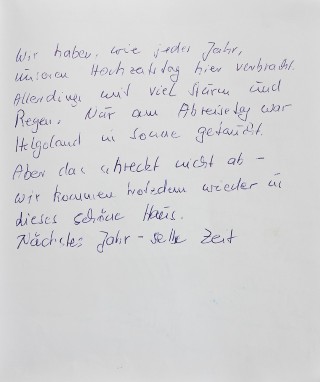 Wir haben, wie jedes Jahr,
unseren Hochzeitstag hier verbracht.
Allerdings mit viel Sturm und
Regen. Nur am Abreisetag war
Helgoland in Sonne getaucht.
Aber das schreckt nicht ab –
wir kommen trotzdem wieder in
dieses schöne Haus.
Nächstes Jahr – selbe Zeit